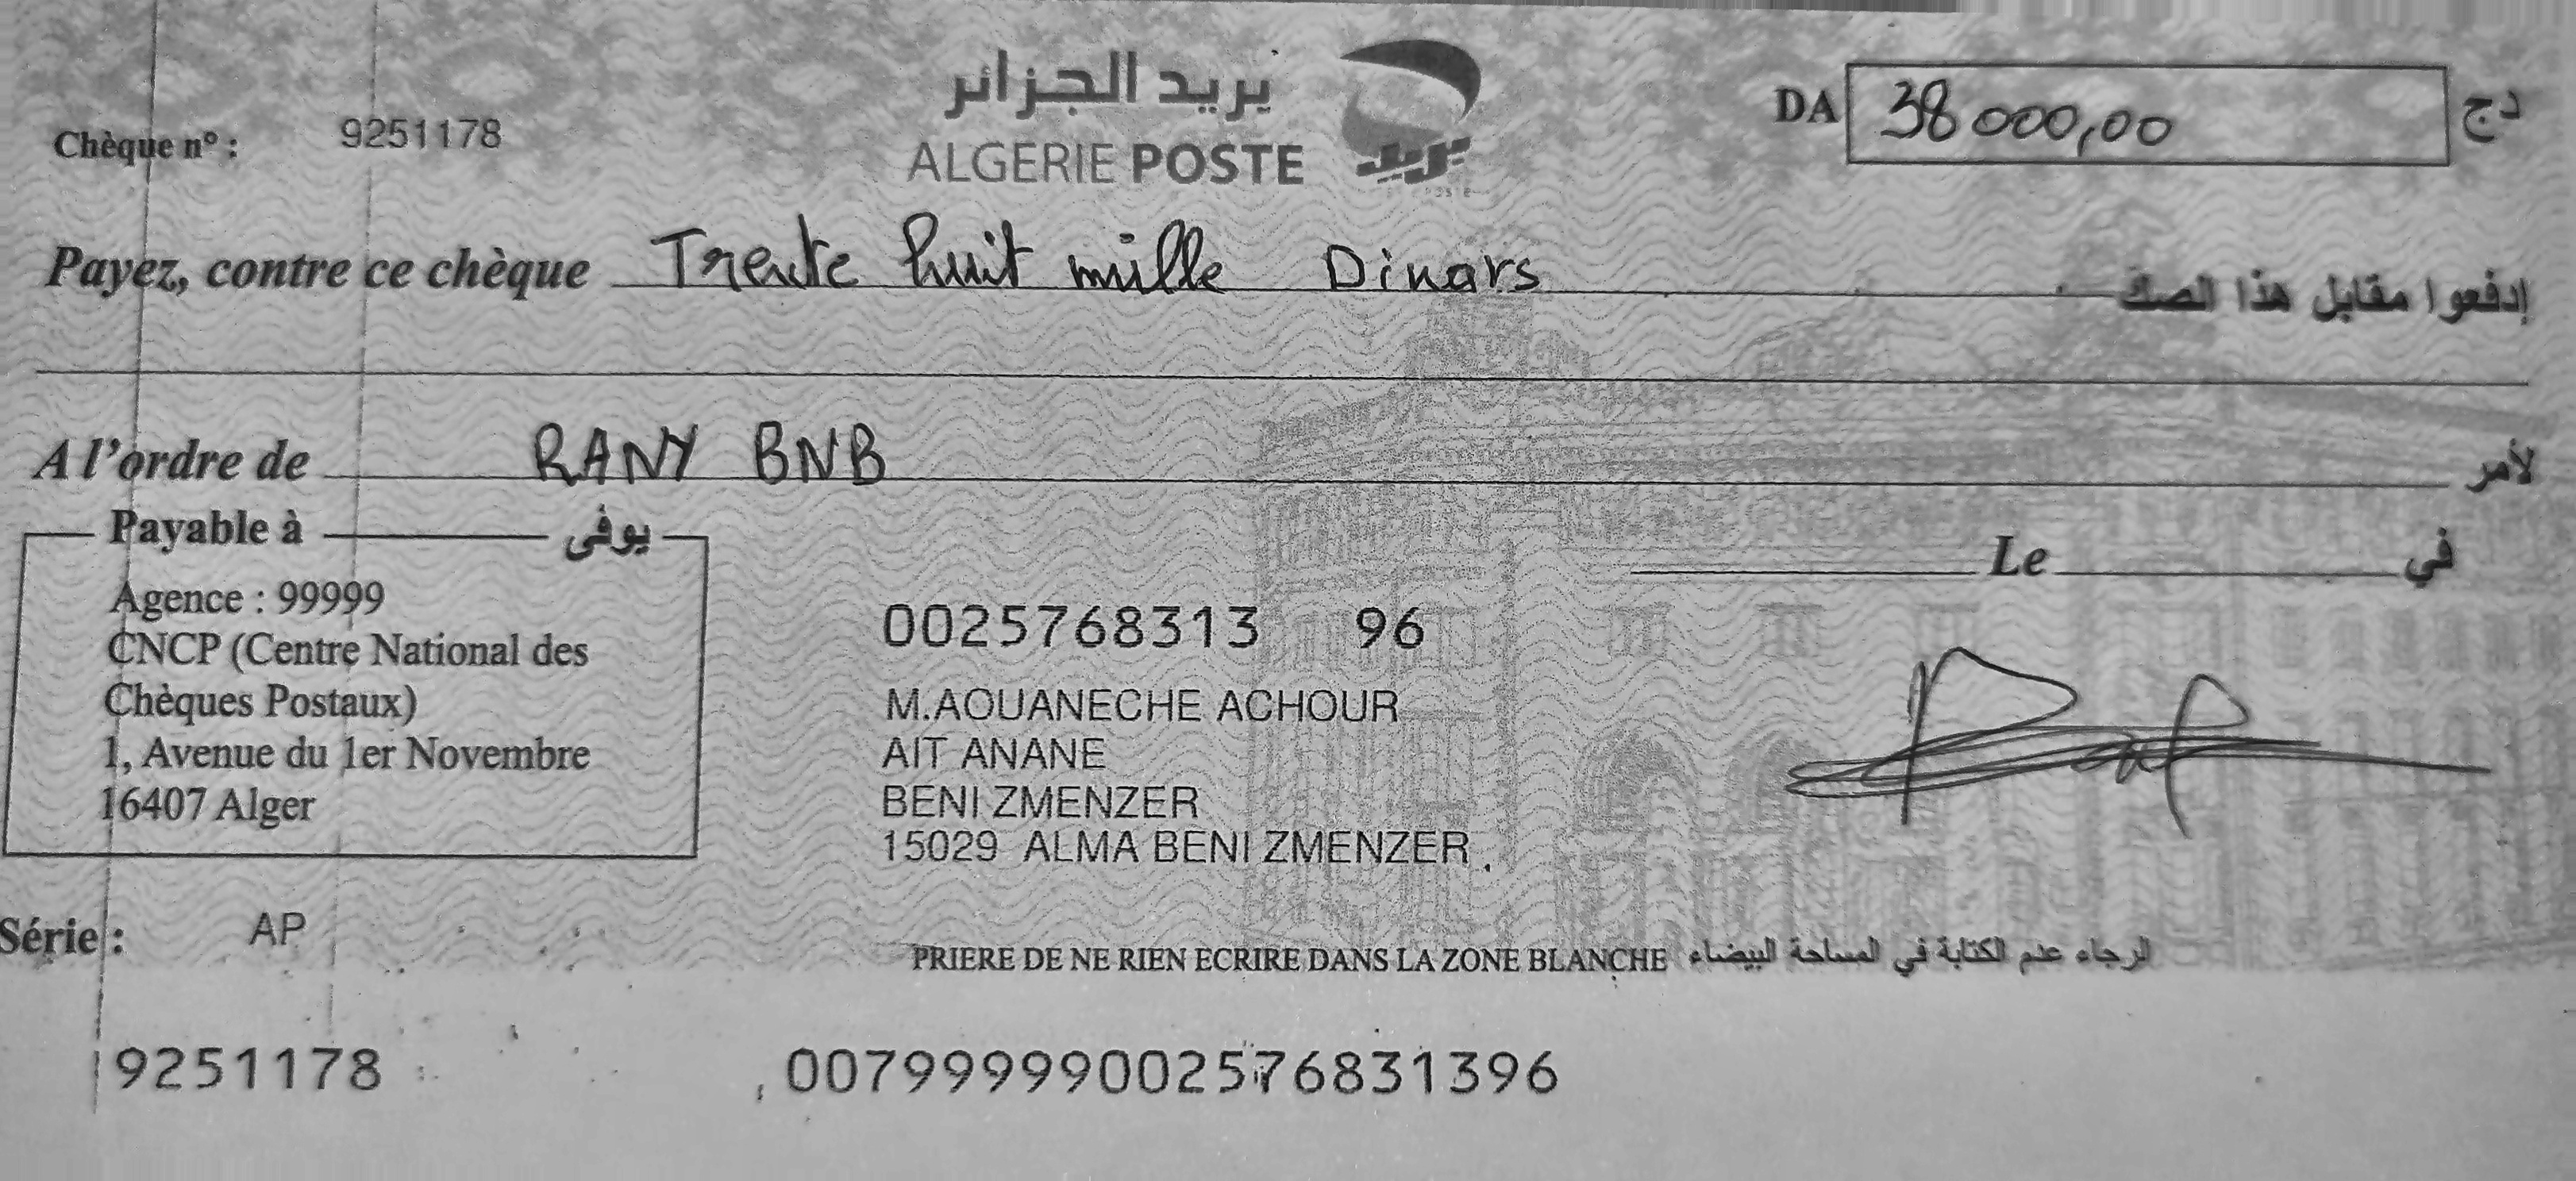 بريد الجزائر
ALGERIE POSTE
بريد
Chèque n° : 9251178
DA 38 000,00 دج
Payez, contre ce chèque Trente huit mille Dinars إدفعوا مقابل هذا الصك
A l'ordre de RANY BNB لأمر
Payable à يوفى
Agence : 99999
CNCP (Centre National des
Chèques Postaux)
1, Avenue du 1er Novembre
16407 Alger
Le في
0025768313 96
M.AOUANECHE ACHOUR
AIT ANANE
BENI ZMENZER
15029 ALMA BENI ZMENZER
Série : AP
PRIERE DE NE RIEN ECRIRE DANS LA ZONE BLANCHE الرجاء عدم الكتابة في المساحة البيضاء
9251178 00799999002576831396